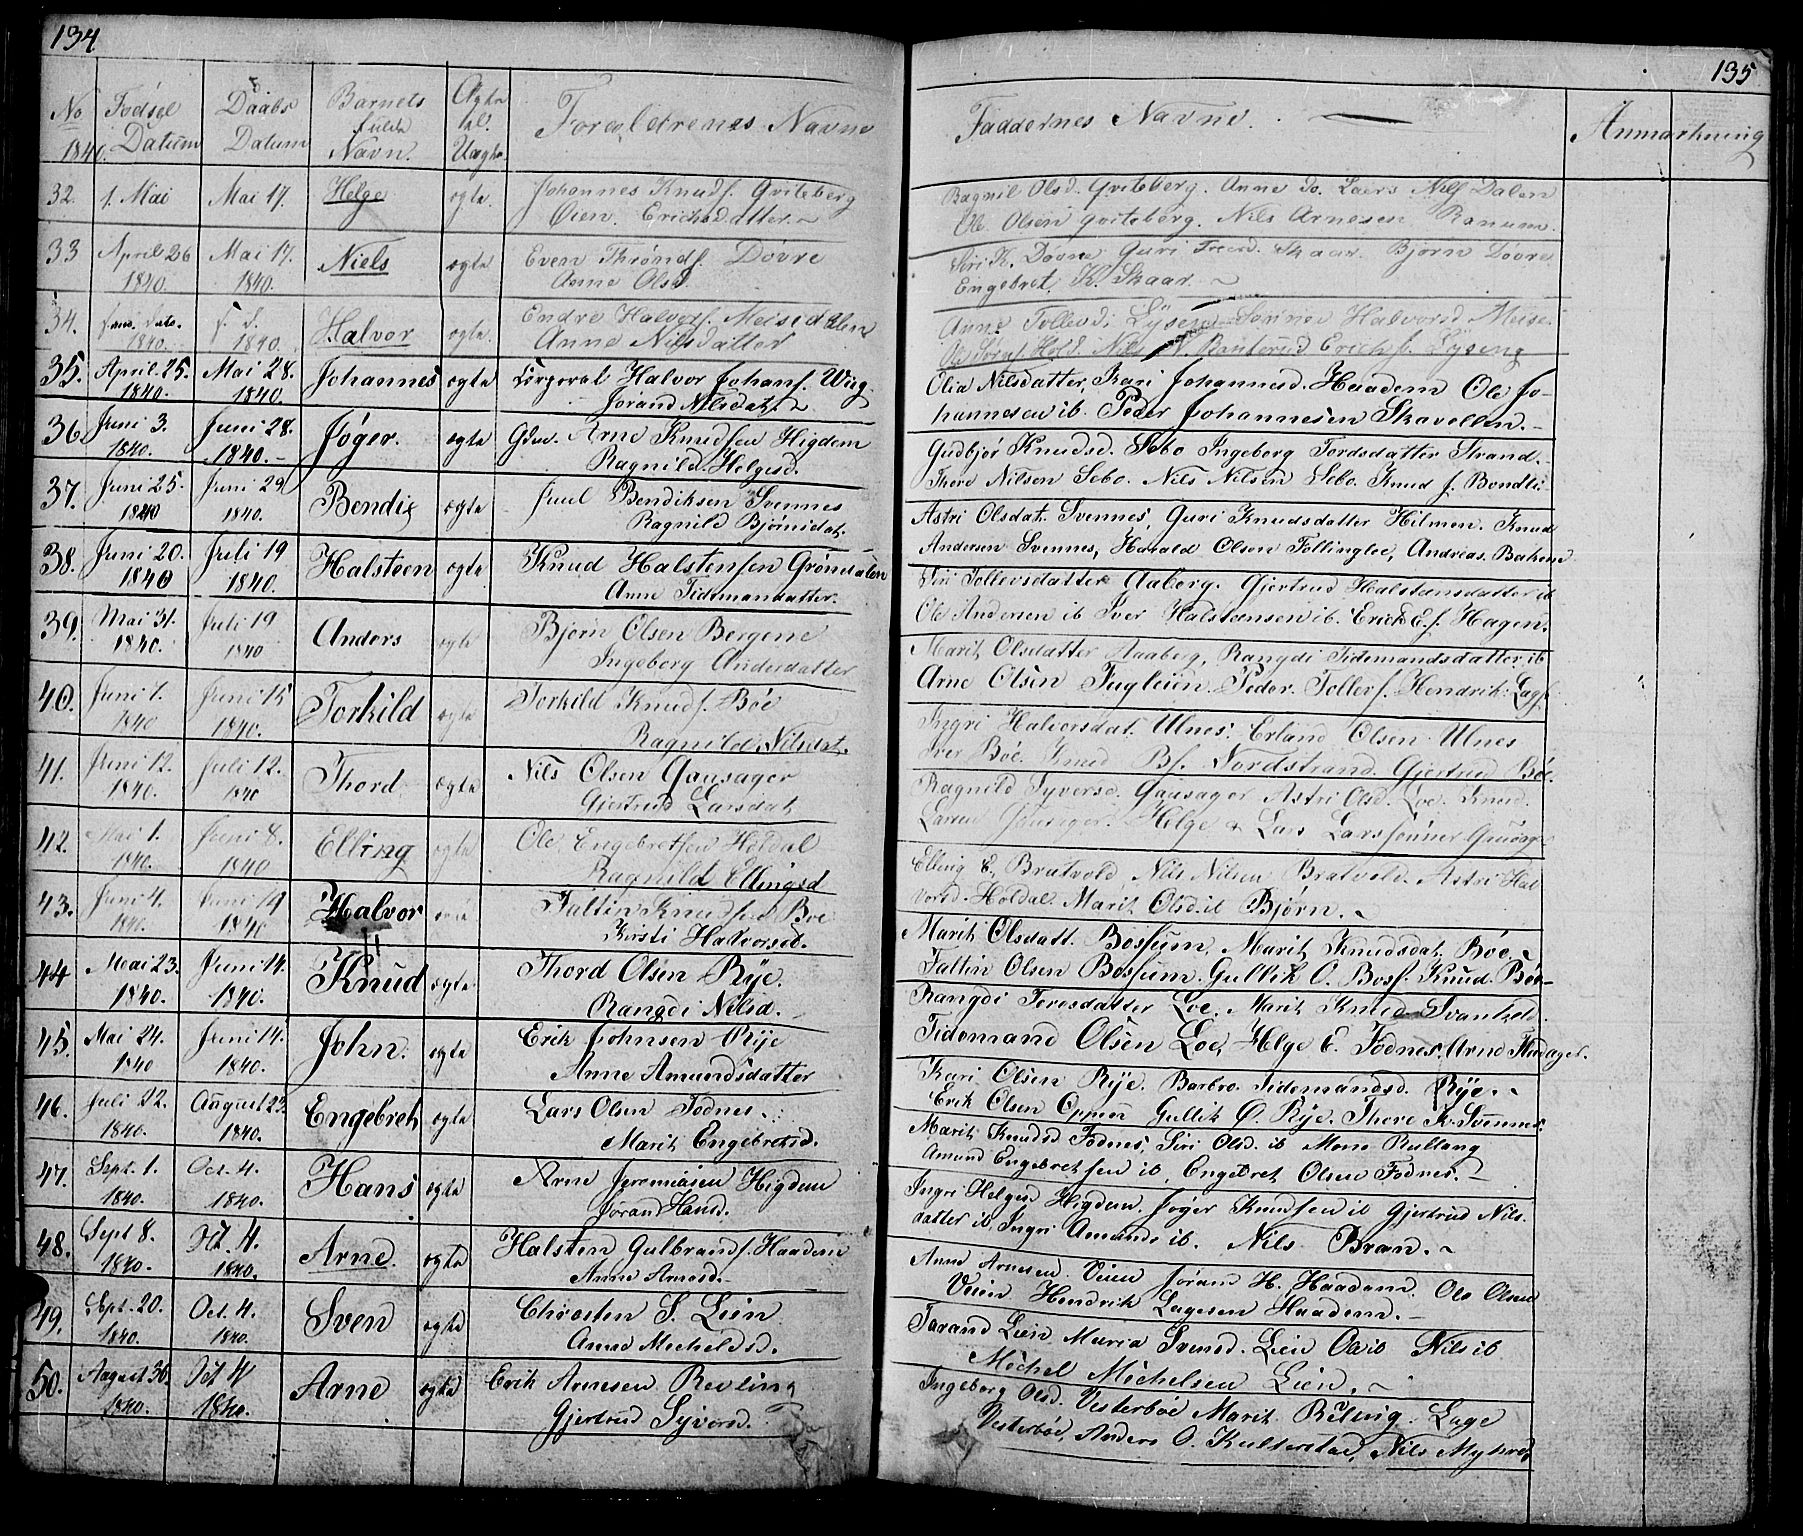 134
No 1840.
Fødsel Datum
Daabs Datum
Barnets fulde Navn.
Ægte el. Uægte
Forældrenes Navne
32. 1. Mai Mai 17. Helge ægte. Johannes Knuds. Qviteberg
Erichsdatter
33 April 26 Mai 17. Niels ægte Even Thrønds. Dovre
1840. 1840. Anne Olsd.
34. 1840. 1840. Halvor ægte. Endre Halvors. Meisedalen
Anne Nilsdatter
35. April 25. Mai 28. Johannes ægte Corporal Halvor Johans. Wiig
1840. 1840. Jorand Nilsdat.
36. Juni 3. Juni 28. Jøger. ægte Gdm. Arne Knudsen Higdem
1840. 1840. Ragnild Helgesd.
37. Juni 25. Juni 29 Bendix ægte Juul Bendiksen Svennes
1840 1840. Ragnild Bjørnsdat.
38. Juni 20. Juli 19 Halsteen ægte Knud Halstensen Grøndalen
1840 1840. Anne Tidemansdatter.
39. Mai 31. Juli 19 Anders ægte Bjørn Olsen Bergene
1840. 1840 Ingeborg Andersdatter
40. Juni 7. Juni 15 Torkild ægte Torkild Knuds. Bøe
1840 1840. Ragnild Nilsdat.
41. Juni 12. Juli 12. Thord ægte Nils Olsen Gausager
1840. 1840 Gjertrud Larsdat
42. Mai 1. Juni 8. Elling ægte Ole Engebretsen Holdal
1840. 1840 Ragnild Ellingsd
43. Juni 4. Juni 14 Halvor Faltin Knudsen Boe
1840. 1840 Kirsti Halvorsd.
44 Mai 23. Juni 14. Knud ægte Thord Olsen Rye.
1840. 1840. Rangdi Nilsd.
45. Mai 24. Juni 14. John. ægte Erik Johnsen Rye
1840 1840. Anne Amundsdatter
46. Juli 22. August 23. Engebret ægte Lars Olsen Fodnes.
1840. 1840. Marit Engebretsd.
47. Sept. 1. Oct. 4. Hans ægte Arne Jeremiasen Higdem
1840. 1840. Jorand Hansd.
48. Sept 8. Oct. 4. Arne. ægte Halsten Gulbrands. Haadem
1840. 1840. Anne Arnesd.
49. Sept. 20. Oct. 4. Sven ægte Christen S. Lien
1840. 1840. Anne Micheldsd.
50. August 30. Oct 4 Arne ægte Erik Arnesen Revling
1840. 1840. Gjertrud Syversd.
135
Faddernes Navne.
Anmærkning
Ragnil Olsd. Qviteberg. Anne do. Laers Nils Dalen
Ole Olsen Qviteberg. Nils Arnesen Ranum
Siri K. Dovre Guri Skaar. Bjørn Dovre
Engebret K. Skaar.
Anne Tollevd. Lysen Halvorsd Meise
Nils N. Bruterud Erich s. Lysing
Olia Nilsdatter, Kari Johannesd. Haadem Ole Jo-
hannesen ib. Peder Johannesen Skavellen.
Gudbjør Knudsd. Sebo Ingeborg Tordsdatter Strand.
Thore Nilsen Sebo. Nils Nilsen Sebo. Knud J. Bondli
Astri Olsdat. Svennes, Guri Knudsdatter Hilmen. Knud
Andersen Svennes, Harald Olsen Follinglee, Andreas Bakene
Siri Tollevsdatter Aaberg. Gjertrud Halstensdatter ib
Ole Andersen ib Iver Halsteensen ib. Erick E. s. Hagen.
Marit Olsdatter Aaberg, Rangdi Tidemandsdatter ib
Arne Olsen Fugleien Peder Tollefs. Hendrik Lags.
Ingri Halvorsdat. Ulnes. Erland Olsen Ulnes
Iver Bøe. Knud B.s. Nordstrand. Gjertrud Bøe.
Ragnild Syversd. Gausager Astri Olsd. Loe. Knud
Larsen Helge & Lars Larssønner Gausag
Elling E. Bratvold Nils Nilsen Bratvold. Astri Hal
vorsd. Holdal Marit Olsd. ib Bjørn.
Marit Olsdatt. Bossum, Marit Knudsdat. Bøe.
Faltin Olsen Bossum. Gullik O. Boss. Knud Bøe
Rangdi Toresdatter Loe. Marit Knud Svanhild
Tidemand Olsen Loe, Helge E. Fodnes. Arne
Kari Olsen Rye. Barbro Tidemandsd. Rye.
Erik Olsen Gullik O. Rye. Thore K. Svennes.
Marit Knudsd Fodnes, Siri Olsd. ib
Amund Engebretsen ib, Engebret Olsen Fodnes.
Ingri Helgesd Higdem. Jøger Knudsen ib Gjertrud Nils.
datter ib, Ingri Amunds ib. Nils Bran.
Anne Arnesen Veien Jøran H. Haadem. Ole Olsen
Veien Hendrik Lagesen Haadem.
Tarand Lien Maria Svensd. Lien Ole ib Nils ib
Michel Michelsen Lien.
Ingeborg Olsd. Vesterbøe Marit Revling. Lage
Vesterbøe, Anders O. Kulterstad, Nils Myhre